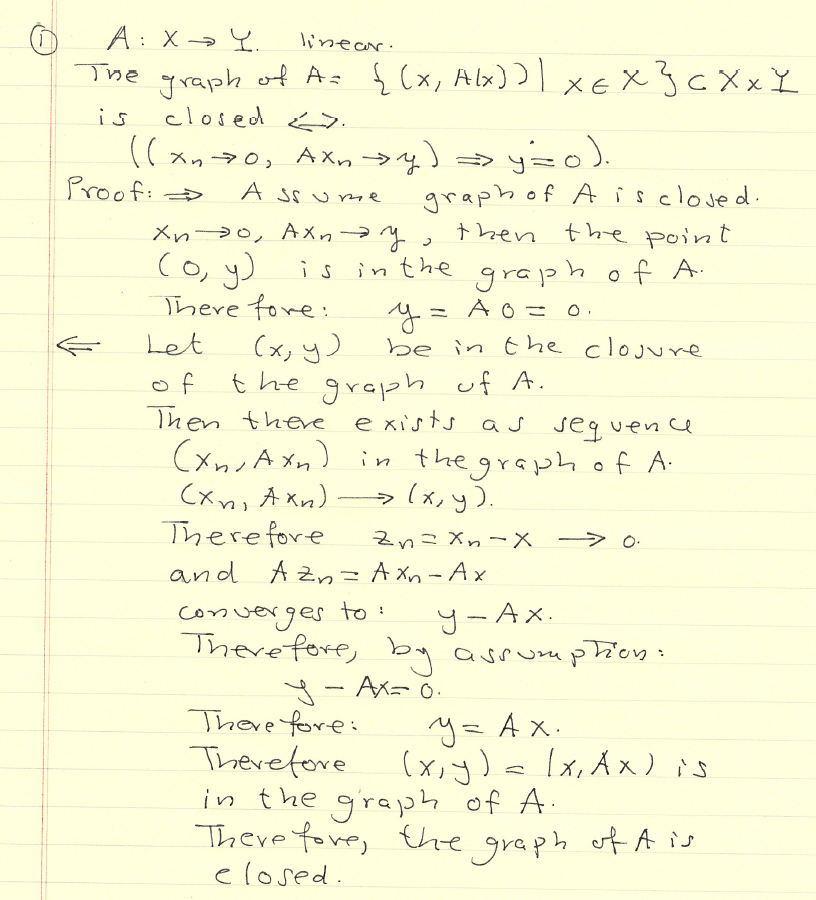 ① A: X → Y. linear.
The graph of A = {(x, A(x)) | x ∈ X} ⊂ X x Y
is closed <=>.
((xn → 0, Axn → y) ⇒ y = 0).
Proof: ⇒ Assume graph of A is closed.
xn → 0, Axn → y, then the point
(0, y) is in the graph of A.
Therefore: y = A0 = 0.
⇐ Let (x, y) be in the closure
of the graph of A.
Then there exists as sequence
(xn, Axn) in the graph of A.
(xn, Axn) → (x, y).
Therefore zn = xn - x → 0.
and Azn = Axn - Ax
converges to: y - Ax.
Therefore, by assumption:
y - Ax = 0.
Therefore: y = Ax.
Therefore (x, y) = (x, Ax) is
in the graph of A.
Therefore, the graph of A is
closed.